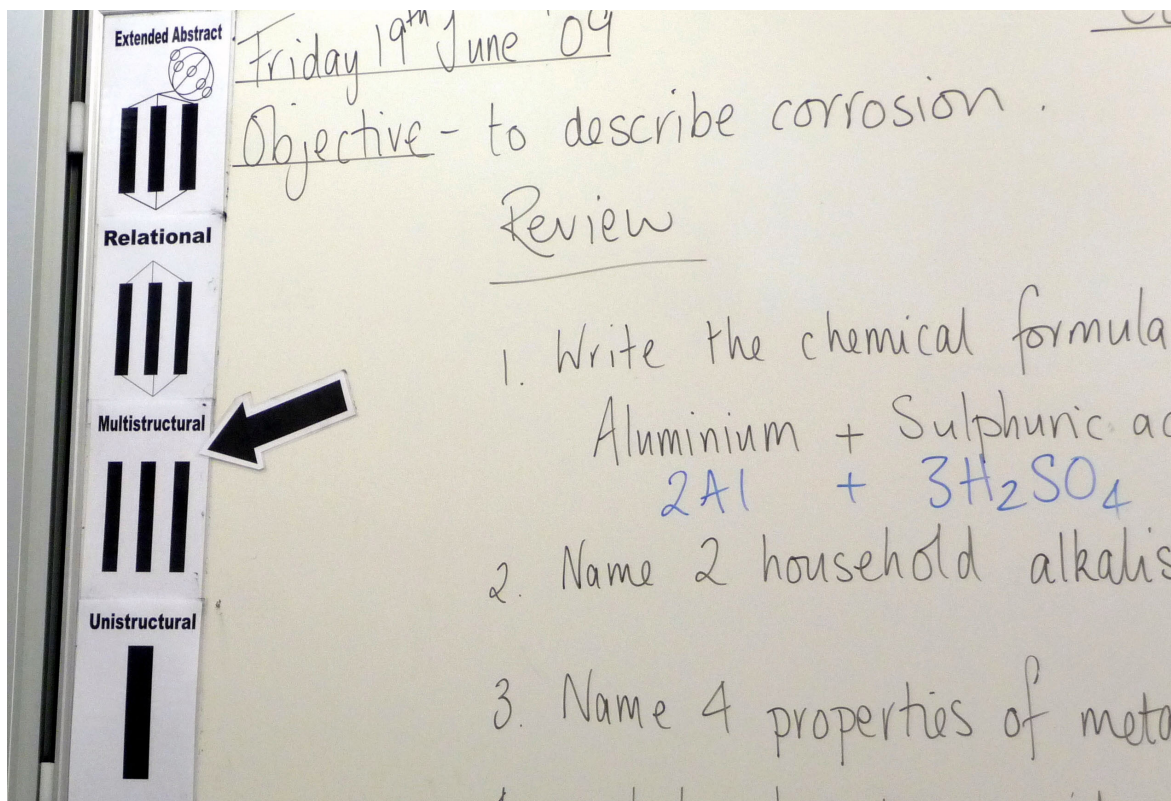 Extended Abstract
Relational
Multistructural
Unistructural
Friday 19th June '09
Objective - to describe corrosion.
Review
1. Write the chemical formula
Aluminium + Sulphuric ac
2Al + 3H₂SO₄
2. Name 2 household alkalis
3. Name 4 properties of meta